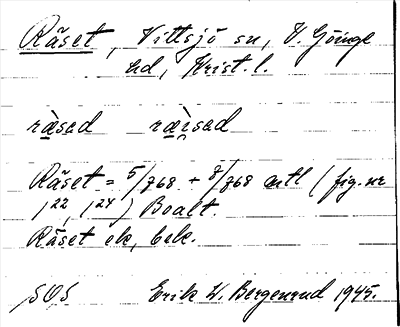 Råset, Vittsjö sn, V. Göinge
hd, Krist. l.
ræsad ræi̯sad
Råset = 5/768 + 8/768 mtl (fig. nr
1²², 1²⁴) Boalt.
Råset ek, bek.
SOS Erik W. Bergenrud 1945.